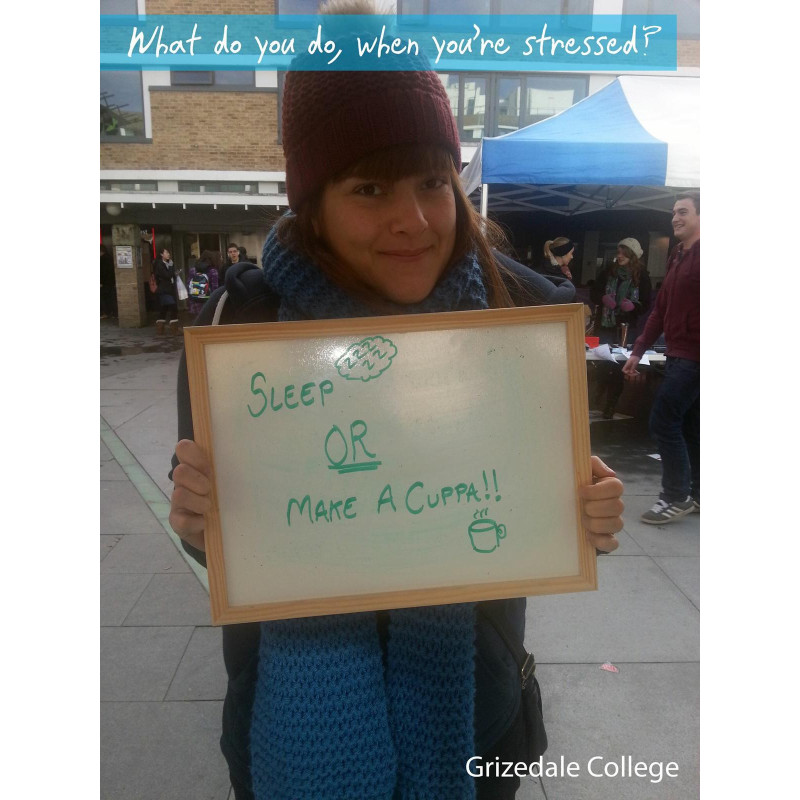 What do you do, when you're stressed?
SLEEP
OR
MAKE A CUPPA!!
Grizedale College